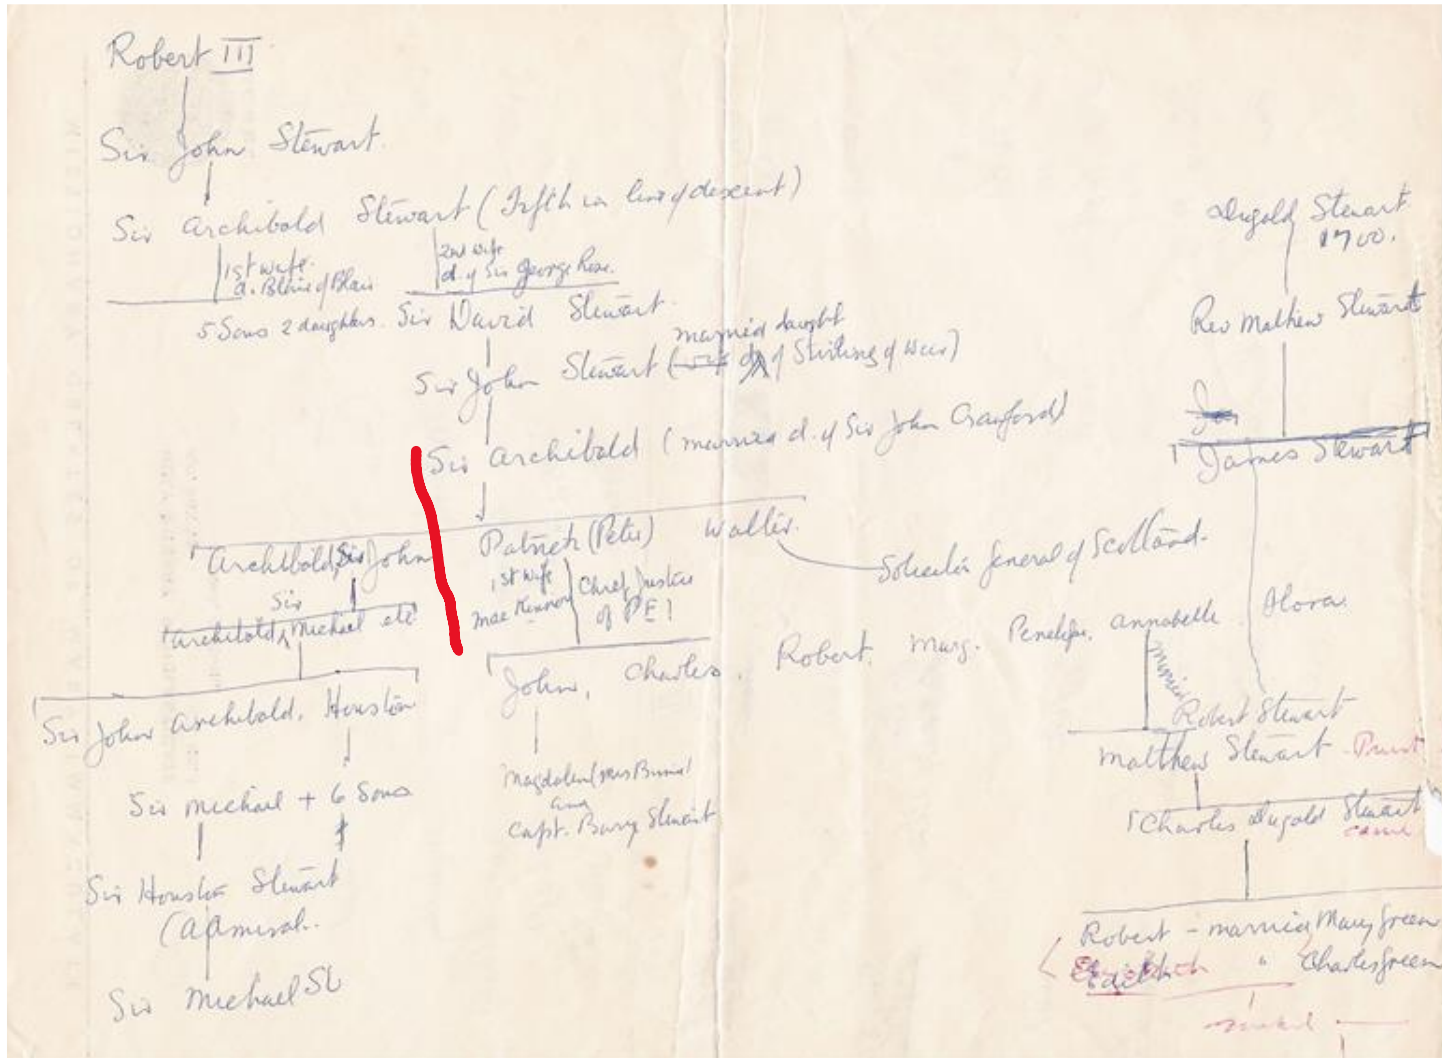 Robert III
Sir John Stewart.
Sir Archibald Stewart (Fifth in line of descent)
1st wife.
d. Blair of Blair
2nd wife
d. of Sir George Rose.
5 Sons 2 daughters.
Sir David Stewart.
married daught
Sir John Stewart ( of Stirling of Weir)
Sir Archibald (married d. of Sir John Crauford)
Archibald, Sir John
Patrick (Peter)
Walter.
Solicitor General of Scotland.
1st wife
MacKinnon
Chief Justice
of PEI
Sir
Archibald, Michael etc
John, Charles, Robert, Marg. Penelope, Annabelle. Flora.
Sir John Archibald, Houston
Sir Michael + 6 Sons
Sir Houston Stewart
(Admiral.
Sir Michael St
Magdalen
and
Capt. Stewart
Dugold Stewart
1700.
Rev Mathew Stewart
James Stewart
married
Robert Stewart
Matthew Stewart
Charles Dugald Stewart
came
Robert - married Mary Green
Edith " Charles Green